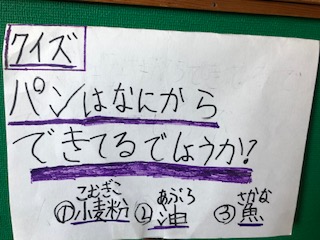 クイズ
パンはなにから
できてるでしょうか?
こむぎこ あぶら さかな
①小麦粉 ②油 ③魚